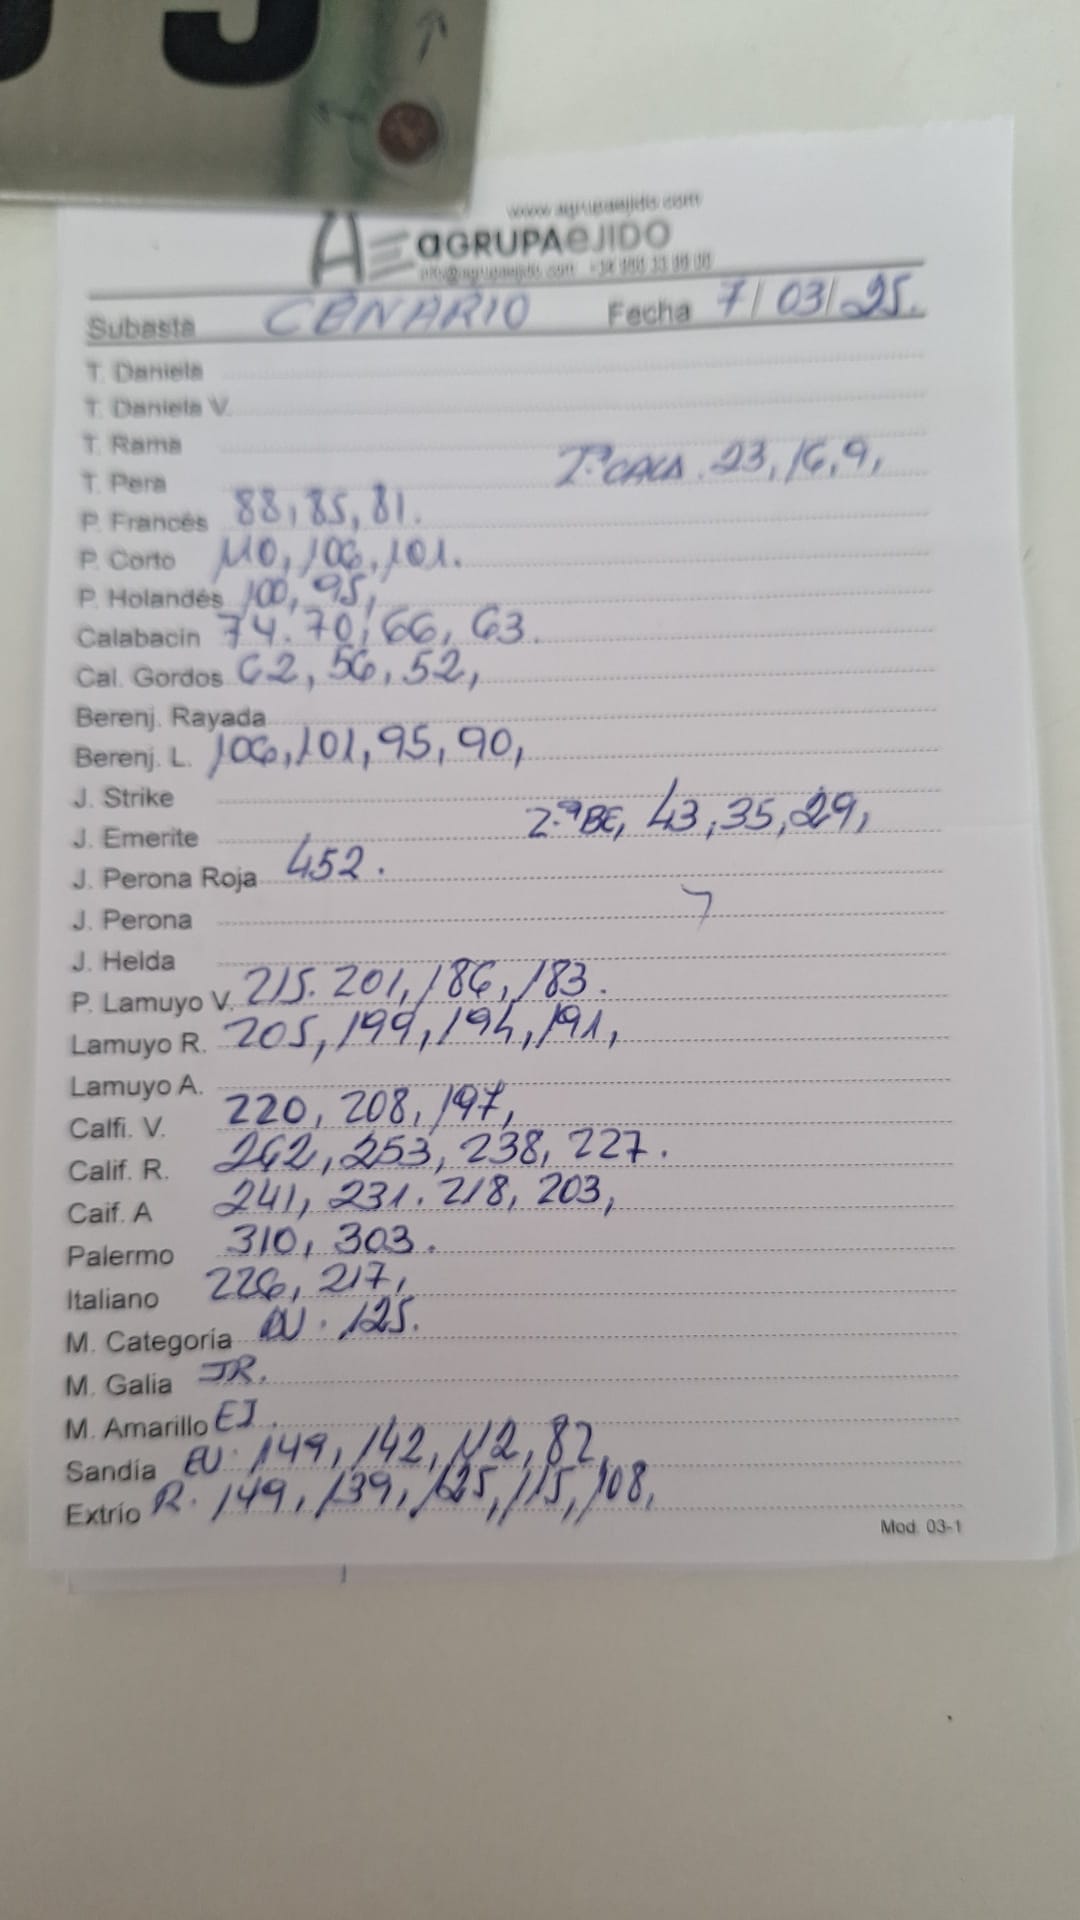 www.agrupaejido.com
AE aGRUPAeJIDO
info@agrupaejido.com
Subasta CENARIO Fecha 7/03/25.
T. Daniela
T. Daniela V.
T. Rama
T. Pera 2.ª CALA. 23, 16, 9,
P. Francés 88, 85, 81.
P. Corto 110, 106, 101.
P. Holandés 100, 95,
Calabacín 74. 70, 66, 63.
Cal. Gordos 62, 56, 52,
Berenj. Rayada
Berenj. L. 106, 101, 95, 90,
J. Strike
J. Emerite 2.ª BE, 43, 35, 29,
J. Perona Roja 452.
J. Perona
J. Helda
P. Lamuyo V. 215. 201, 186, 183.
Lamuyo R. 205, 199, 194, 191,
Lamuyo A.
Calfi. V. 220, 208, 197,
Calif. R. 262, 253, 238, 227.
Caif. A 241, 231. 218, 203,
Palermo 310, 303.
Italiano 226, 217,
M. Categoría 125.
M. Galia JR.
M. Amarillo EJ.
Sandía EU. 149, 142, 112, 82,
Extrío R. 149, 139, 125, 115, 108,
Mod. 03-1